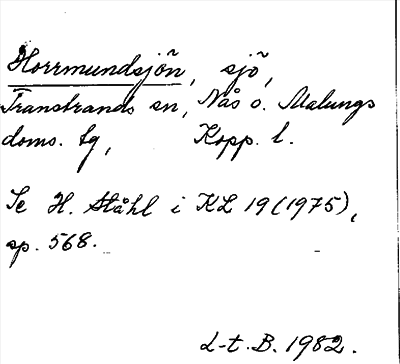 Horrmundsjön, sjö,
Transtrands sn, Nås o. Malungs
doms. tg, Kopp. l.
Se H. Ståhl i KL 19 (1975),
sp. 568.
L-t. B. 1982.